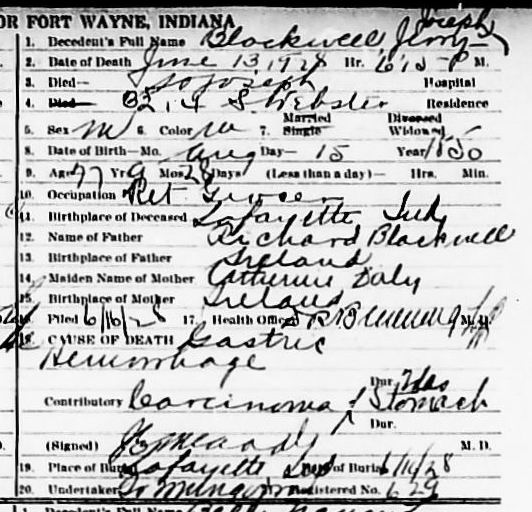 OR FORT WAYNE, INDIANA
Joseph
1. Decedent's Full Name Blackwell, Jerry
2. Date of Death June 13, 1928 Hr. 6:15 P M.
3. Died— St Joseph Hospital
4. Died— S. Webster Residence
5. Sex m 6. Color w 7. Married Single Divorced Widowed
8. Date of Birth—Mo. Aug Day— 15 Year 1850
9. Age 77 Yrs 9 Mos 28 Days (Less than a day)— Hrs. Min.
10. Occupation Ret Grocer
11. Birthplace of Deceased Lafayette Ind
12. Name of Father Richard Blackwell
13. Birthplace of Father Ireland
14. Maiden Name of Mother Catherine Daly
15. Birthplace of Mother Ireland
16. Filed 6/16/28 17. Health Officer M. D.
18. CAUSE OF DEATH Gastric
Hemorrhage
Dur.
Contributory Carcinoma of Stomach
Dur.
(Signed) M. D.
19. Place of Burial Lafayette Ind Date of Burial 6/16/28
20. Undertaker Registered No. 629
1. Decedent's Full Name